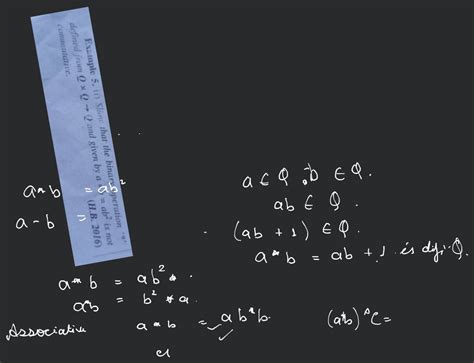 Example 5. (i) Show that the binary operation '*'
defined from Q × Q → Q and given by a * b = ab² is not
commutative. (H.B. 2016)
a*b = ab²
a - b =
a ∈ Q, b ∈ Q.
ab ∈ Q.
(ab + 1) ∈ Q.
a * b = ab + 1 is Q.
a * b = ab²
a*b = b² * a.
Associative a * b = ab*b.
(a*b) * C =